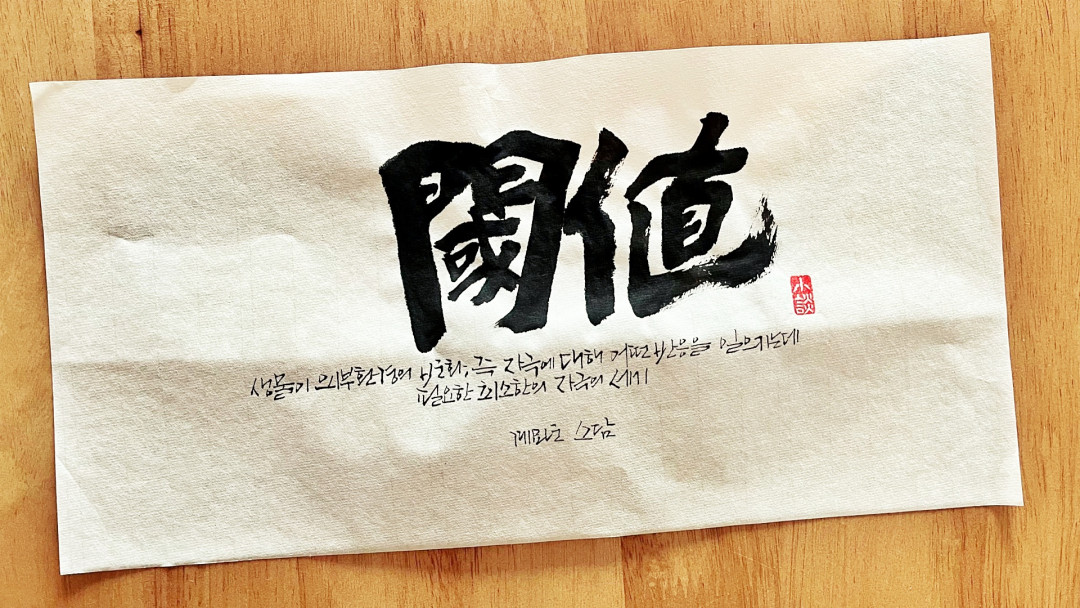 閾値
小談
생물이 외부환경의 변화, 즉 자극에 대해 어떤 반응을 일으키는데
필요한 최소한의 자극의 세기
계묘초 소담